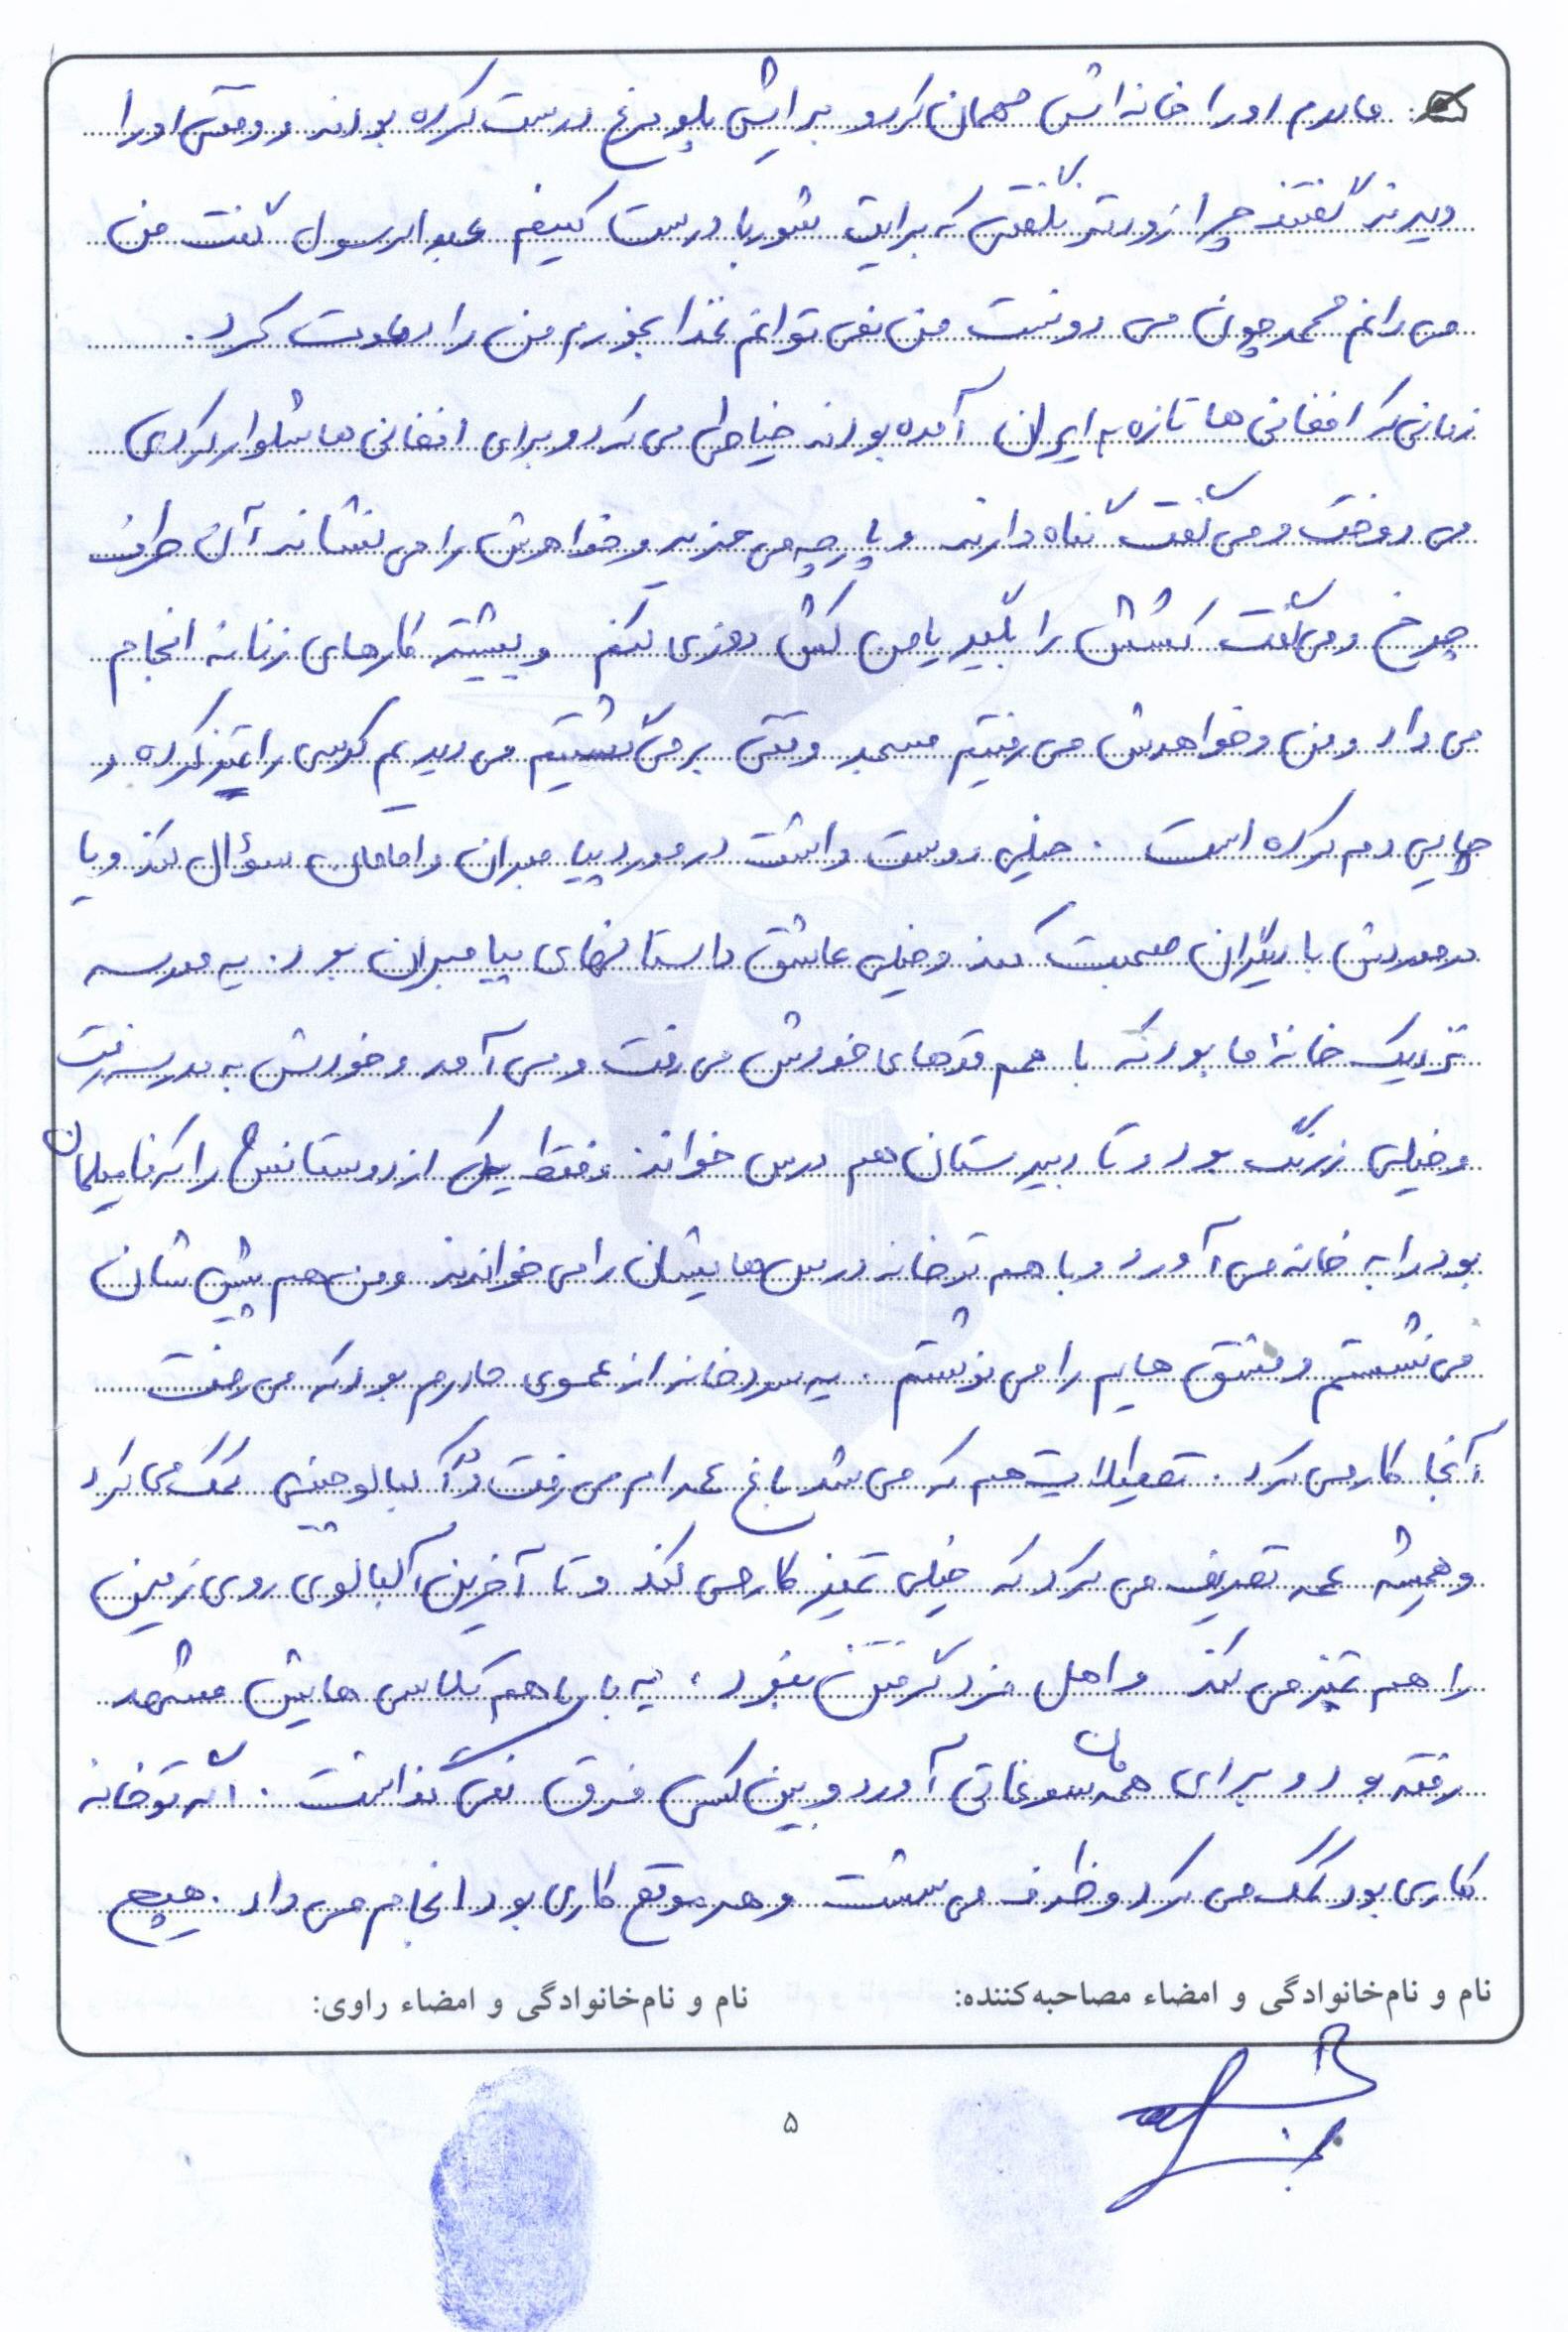 مادرم او را خانه اش مهمان کرد و برایش پلو مرغ درست کرده بودند و وقتی او را
دیدند گفتند چرا زودتر نگفتی که برایت شوربا درست کنیم عبدالرسول گفت من
می دانم محمد چون می دونست من نمی توانم غذا بخورم من را دعوت کرد.
زمانی که افغانی ها تازه به ایران آمده بودند خیاطی می کرد و برای افغانی ها شلوار کردی
می دوخت و می گفت گناه دارند و پارچه می خرید و خواهرش را می نشاند آن طرف
چرخ و می گفت کشش را بگیر یا من کش دوزی کنم و بیشتر کارهای زنانه انجام
می داد و من و خواهرش می رفتیم مسجد وقتی بر می گشتیم می دیدیم کرسی را تمیز کرده و
چایی دم کرده است. خیلی دوست داشت در مورد پیامبران و امامان سؤال کند و یا
در موردش با دیگران صحبت کند و خیلی عاشق داستانهای پیامبران بود. یه مدرسه
نزدیک خانۀ ما بود که با هم قدهای خودش می رفت و می آمد و خودش به مدرسه رفت
و خیلی زرنگ بود و تا دبیرستان هم درس خواند و فقط یکی از دوستانش را که فامیلمان
بود را به خانه می آورد و با هم تو خانه درس هایشان را می خواندند و من هم پیش شان
می نشستم و مشق هایم را می نوشتم. یه سردخانه از عموی مادرم بود که می رفت
آنجا کار می کرد. تعطیلات هم که می شد باغ عمه ام می رفت و آلبالو چینی کمک می کرد
و همیشه عمه تعریف می کرد که خیلی تمیز کار می کند و تا آخرین آلبالوی روی زمین
را هم تمیز می کند و اهل مزد گرفتن نبود. یه بار با هم کلاسی هایش مشهد
رفته بود و برای همه مان سوغاتی آورد و بین کسی فرق نمی گذاشت. اگه تو خانه
کاری بود کمک می کرد و ظرف می شست و هر موقع کاری بود انجام می داد. هیچ
نام و نام‌خانوادگی و امضاء مصاحبه‌کننده: نام و نام‌خانوادگی و امضاء راوی:
۵